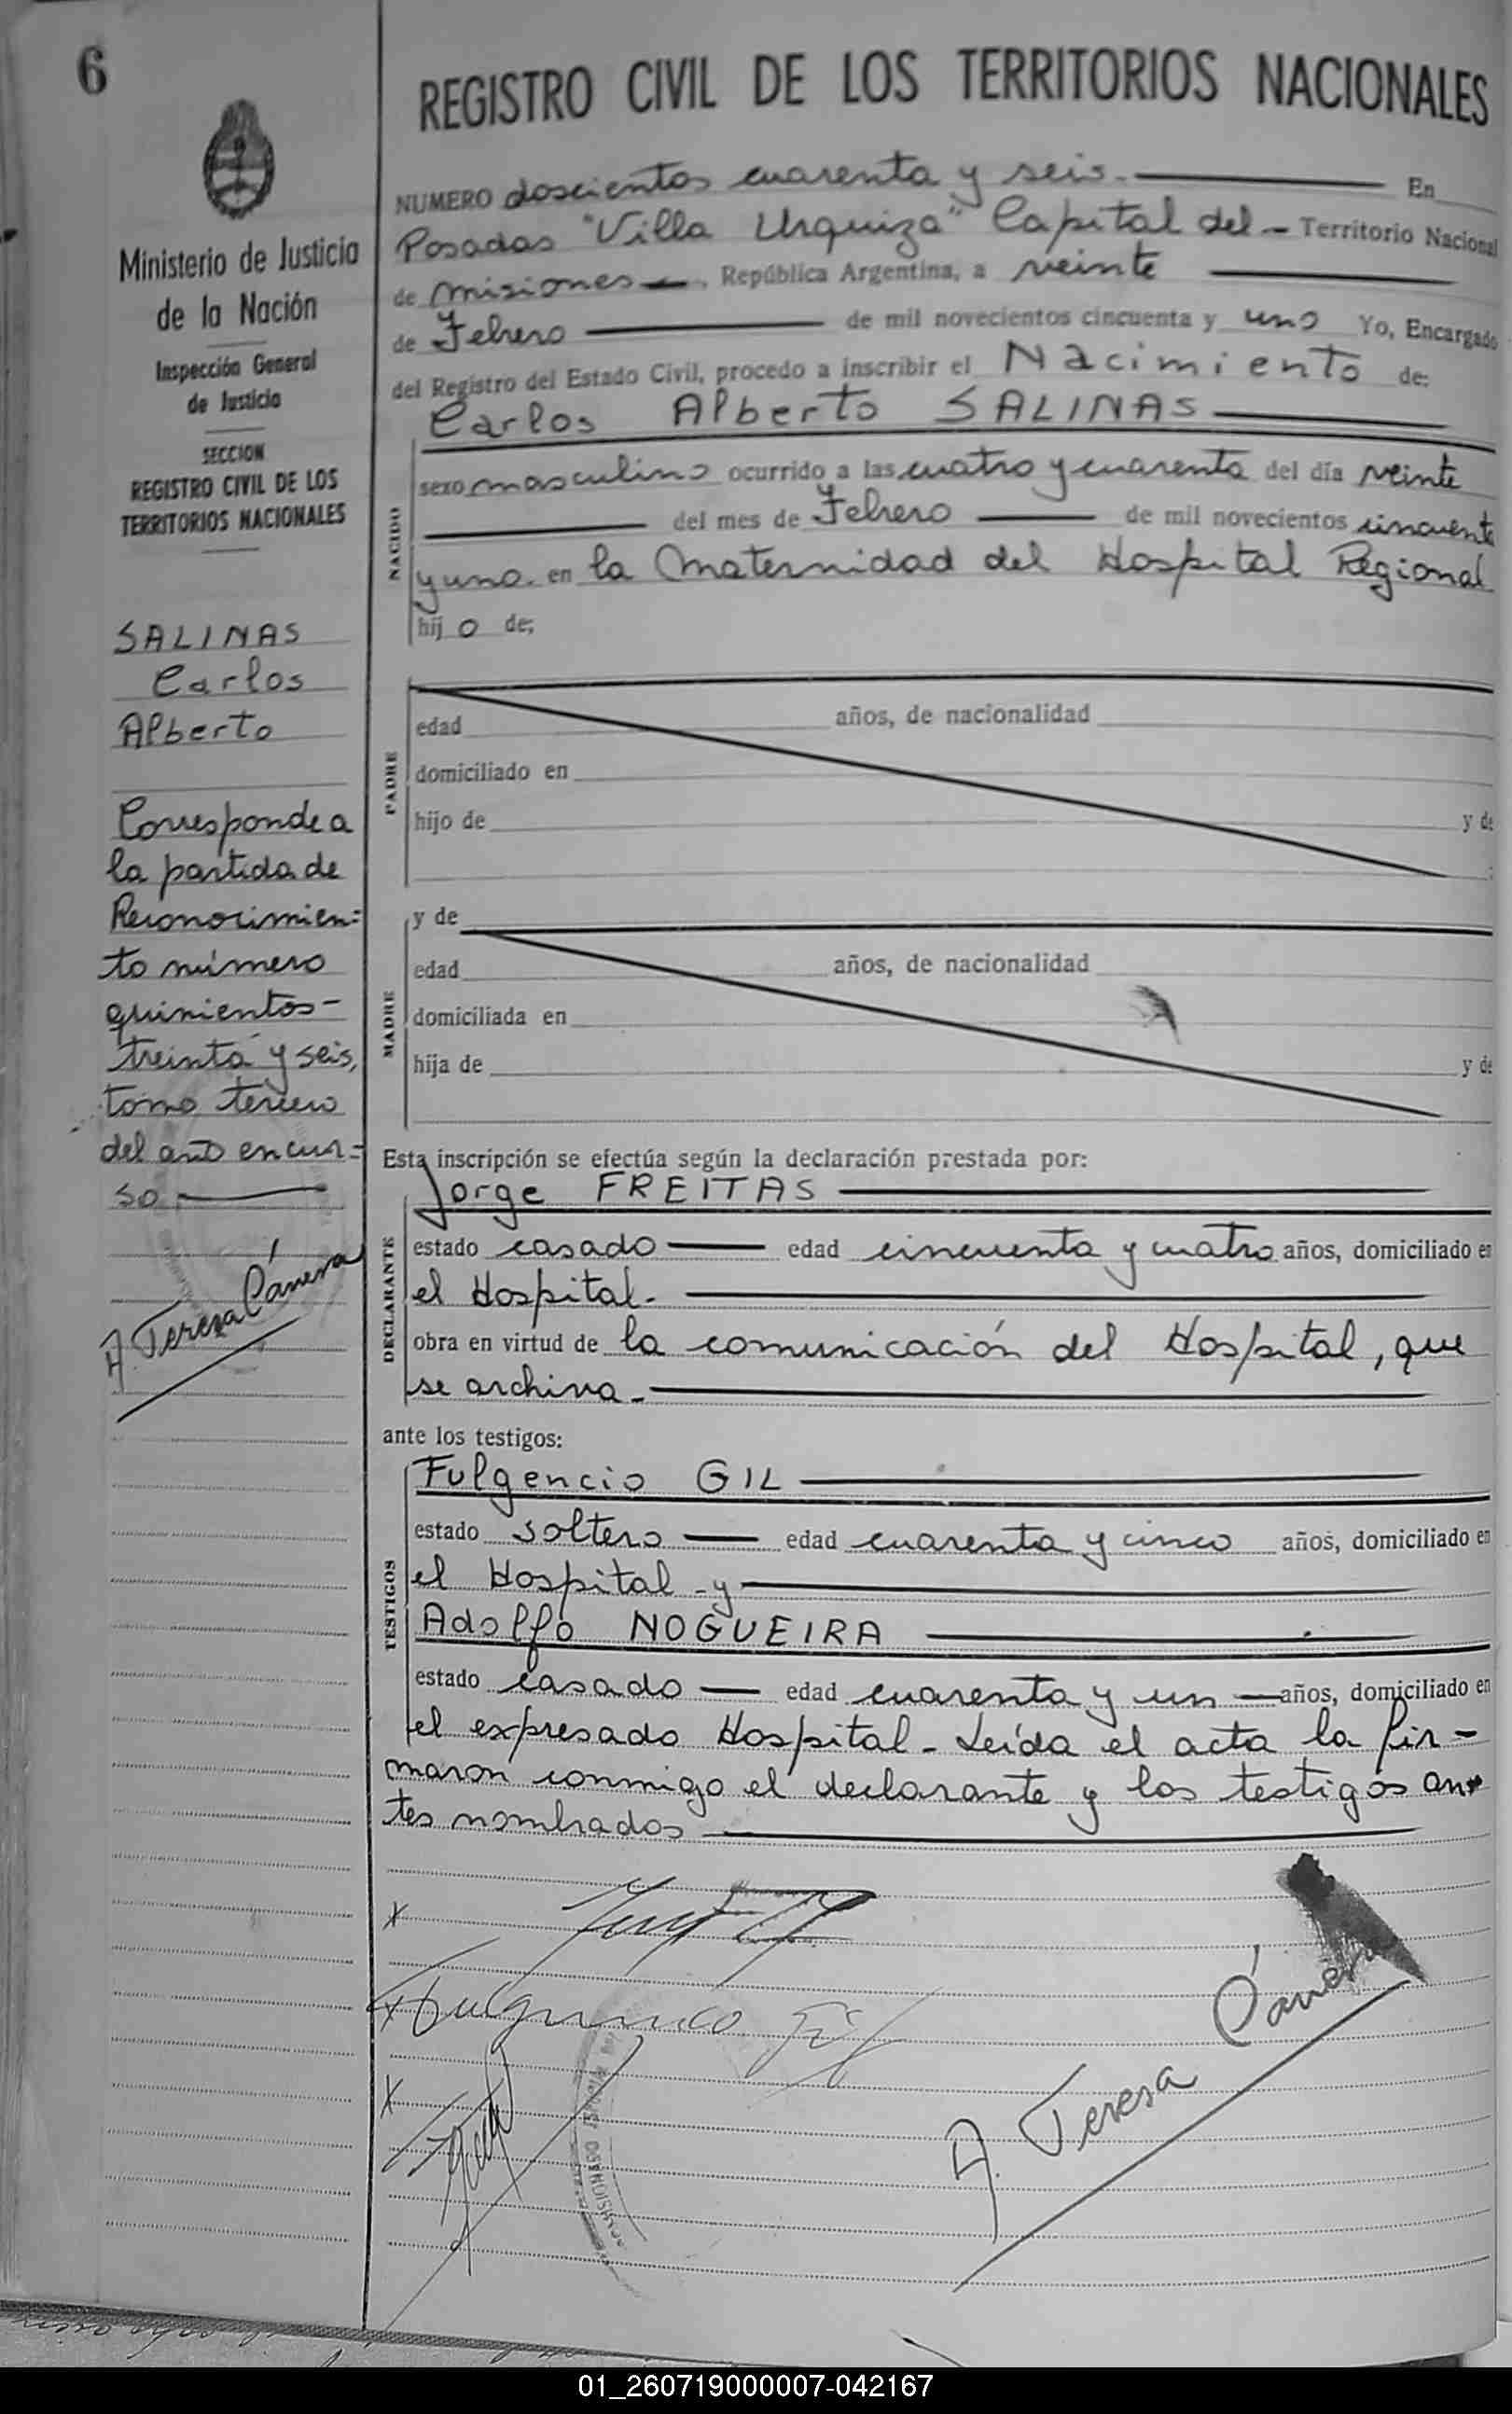 6
REGISTRO CIVIL DE LOS TERRITORIOS NACIONALES
Ministerio de Justicia
de la Nación
Inspección General
de Justicia
SECCION
REGISTRO CIVIL DE LOS
TERRITORIOS NACIONALES
SALINAS
Carlos
Alberto
Corresponde a
la partida de
Reconocimien=
to número
quinientos-
treinta y seis,
tomo tercero
del año en cur=
so
A. Teresa Cánera
NUMERO doscientos cuarenta y seis. En
Posadas "Villa Urquiza" Capital del - Territorio Nacional
de Misiones, República Argentina, a veinte
de Febrero de mil novecientos cincuenta y uno Yo, Encargado
del Registro del Estado Civil, procedo a inscribir el Nacimiento de:
Carlos Alberto SALINAS
NACIDO
sexo masculino ocurrido a las cuatro y cuarenta del día veinte
del mes de Febrero de mil novecientos cincuenta
y uno. en la Maternidad del Hospital Regional
hijo de;
PADRE
edad años, de nacionalidad
domiciliado en
hijo de y de
MADRE
y de
edad años, de nacionalidad
domiciliada en
hija de y de
Esta inscripción se efectúa según la declaración prestada por:
DECLARANTE
Jorge FREITAS
estado casado edad cincuenta y cuatro años, domiciliado en
el Hospital.
obra en virtud de la comunicación del Hospital, que
se archiva.
ante los testigos:
TESTIGOS
Fulgencio GIL
estado soltero edad cuarenta y cinco años, domiciliado en
el Hospital - y
Adolfo NOGUEIRA
estado casado edad cuarenta y un años, domiciliado en
el expresado Hospital - Leída el acta la fir-
maron conmigo el declarante y los testigos an-
tes nombrados
x
x Fulgencio Gil
x
A. Teresa Cánera
01_260719000007-042167